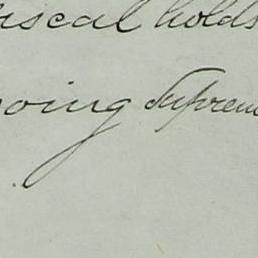 iscal holds
oing Suprem